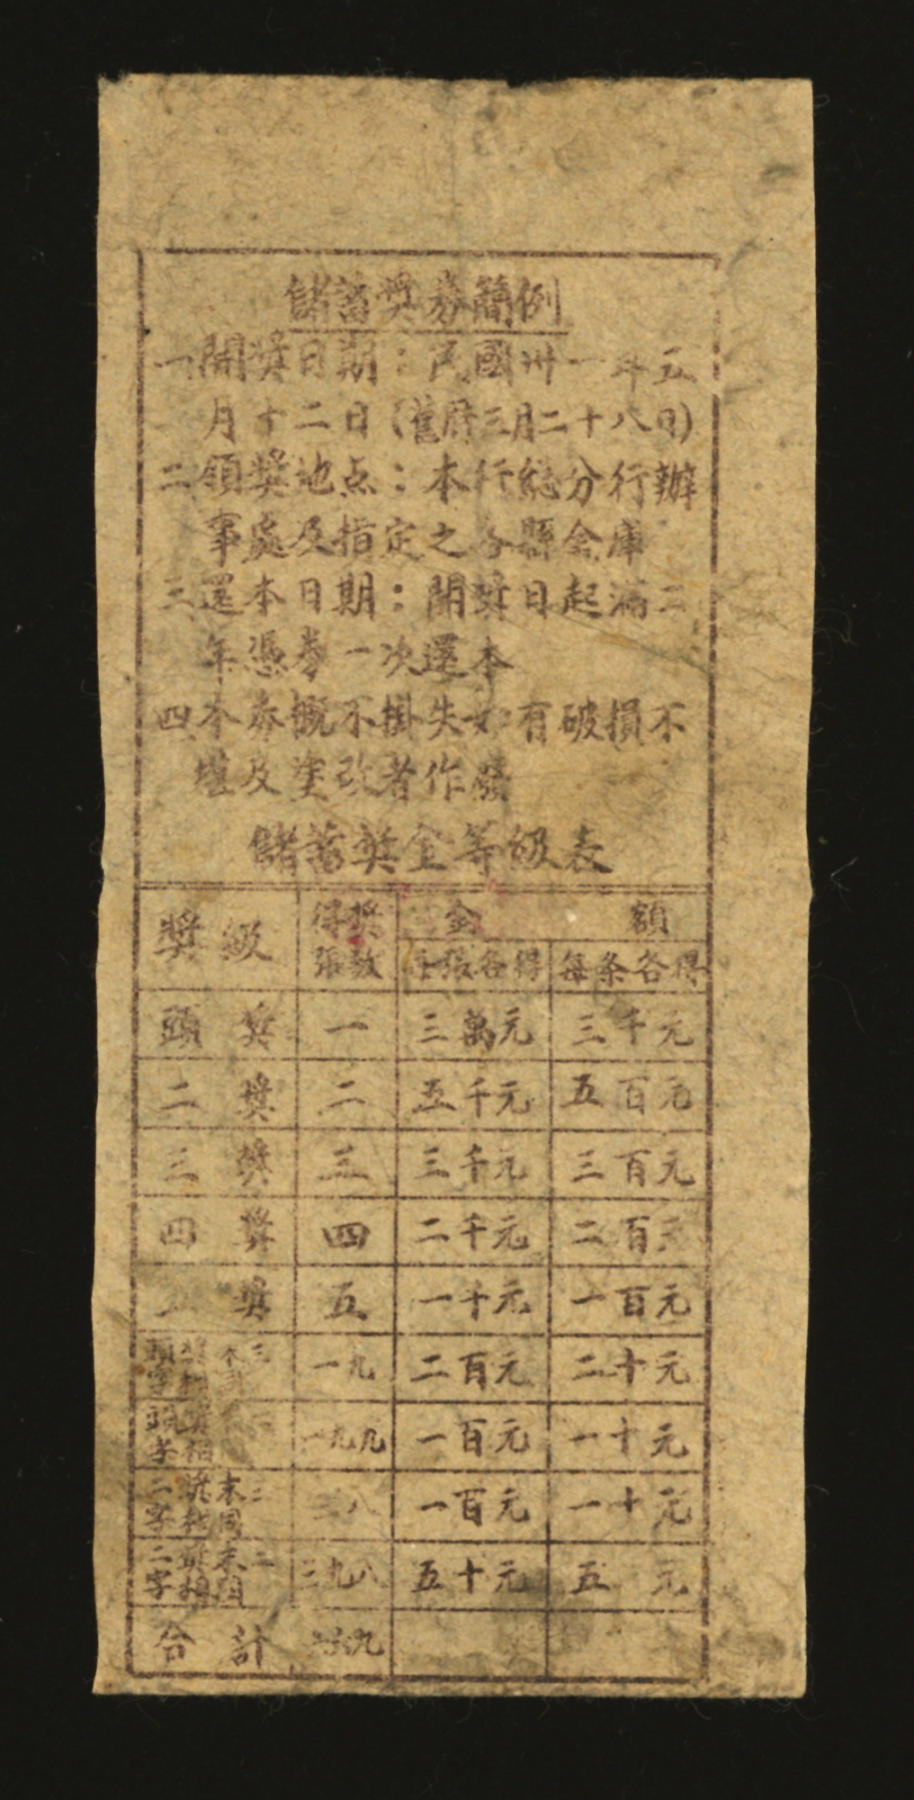 儲蓄獎券簡例
一開獎日期：民國卅一年五
月十二日(舊曆三月二十八日)
二領獎地点：本行總分行辦
事處及指定之各縣金庫
三還本日期：開獎日起滿二
年憑券一次還本
四本券概不掛失如有破損不
堪及塗改者作廢
儲蓄獎金等級表
獎級 得獎張數 金額
張各得 每条各得
頭獎 一 三萬元 三千元
二獎 二 五千元 五百元
三獎 三 三千元 三百元
四獎 四 二千元 二百元
獎 五 一千元 一百元
頭獎末三字相同 一九 二百元 二十元
頭獎 字相 一九九 一百元 一十元
二獎末三字相同 三八 一百元 一十元
二獎末二字相同 三九八 五十元 五元
合計 九